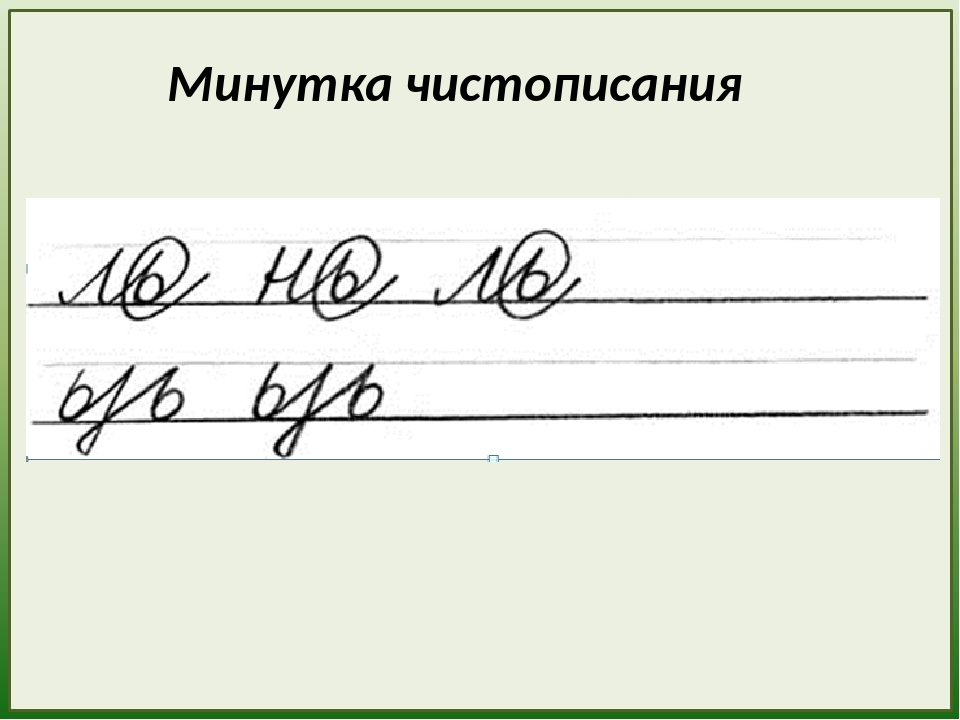 Минутка чистописания
ль нь ль